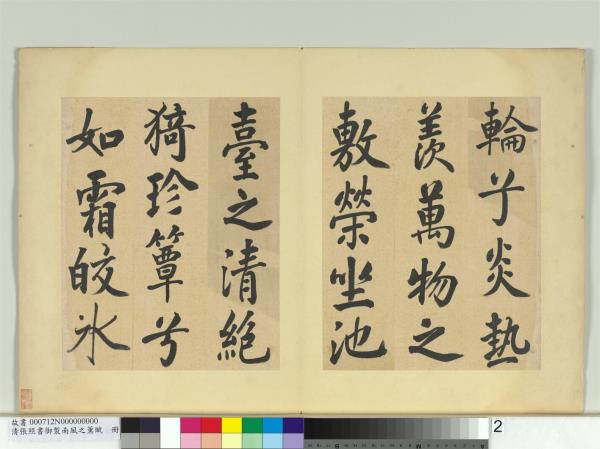 輪于炎熱
羨萬物之
敷榮坐池
臺之清絕
猗珍簟兮
如霜皎氷
故書 000712N000000000
清張照書御製南風之薰賦 冊
2